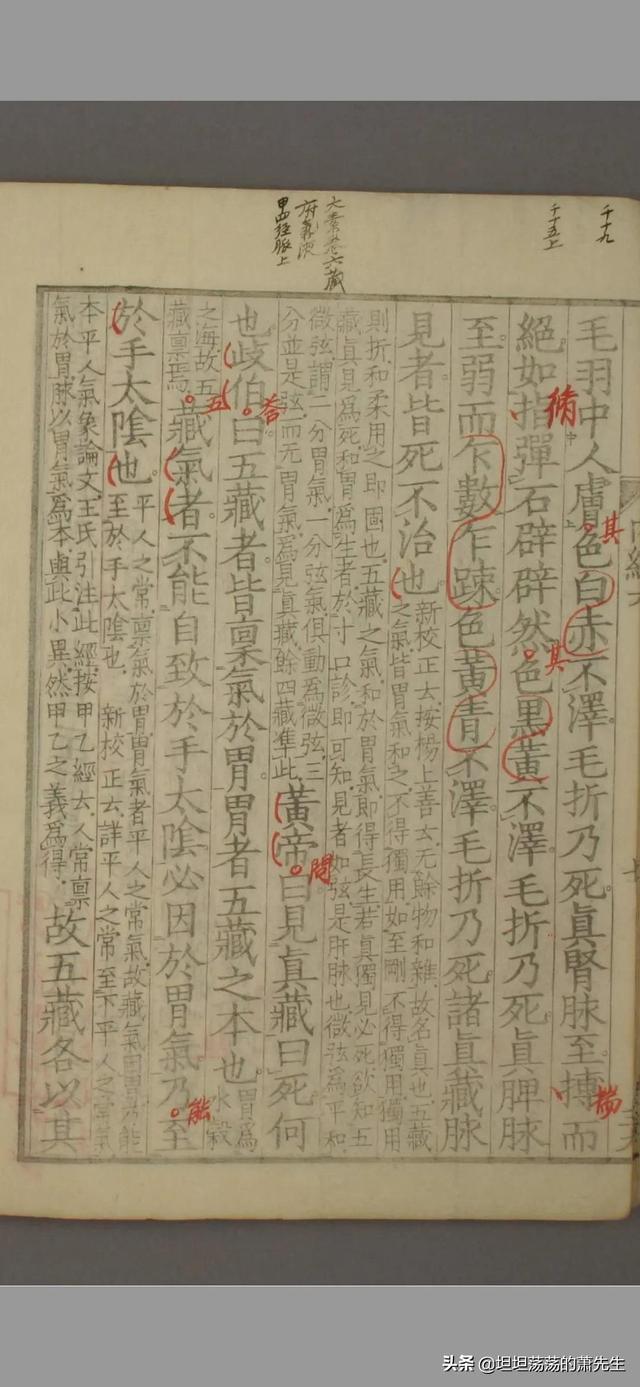 千十九
千十五上
大素卷六藏
府氣液
甲四經脉上
毛羽中人膚色白赤不澤毛折乃死眞腎脉至搏而
其
揣
絕如指彈石辟辟然色黑黃不澤毛折乃死眞脾脉
脩
其
至弱而乍數乍踈色黃青不澤毛折乃死諸眞藏脉
見者皆死不治也
新校正云按楊上善云无餘物和雜故名眞也五藏
之氣皆胃氣和之不得獨用如至剛不得獨用獨用
則折和柔用之即固也五藏之氣和於胃氣即得長生若眞獨見必死欲知五
藏眞見爲死和胃爲生者於寸口診即可知見者如弦是肝脉也微弦爲平和
微弦謂二分胃氣一分弦氣俱動爲微弦三
分並是弦而无胃氣爲見眞藏餘四藏準此
黃帝曰見眞藏曰死何
問
也歧伯曰五藏者皆禀氣於胃胃者五藏之本也
荅
胃爲
水穀
之海故五
藏禀焉
五
藏氣者不能自致於手太陰必因於胃氣乃至
能
於手太陰也
平人之常禀氣於胃胃氣者平人之常氣故藏氣因胃乃能
至於手太陰也 新校正云詳平人之常至下平人之常氣
本平人氣象論文王氏引注此經按甲乙經云人常禀
氣於胃脉以胃氣爲本與此小異然甲乙之義爲得
故五藏各以其
头条 @坦坦荡荡的萧先生